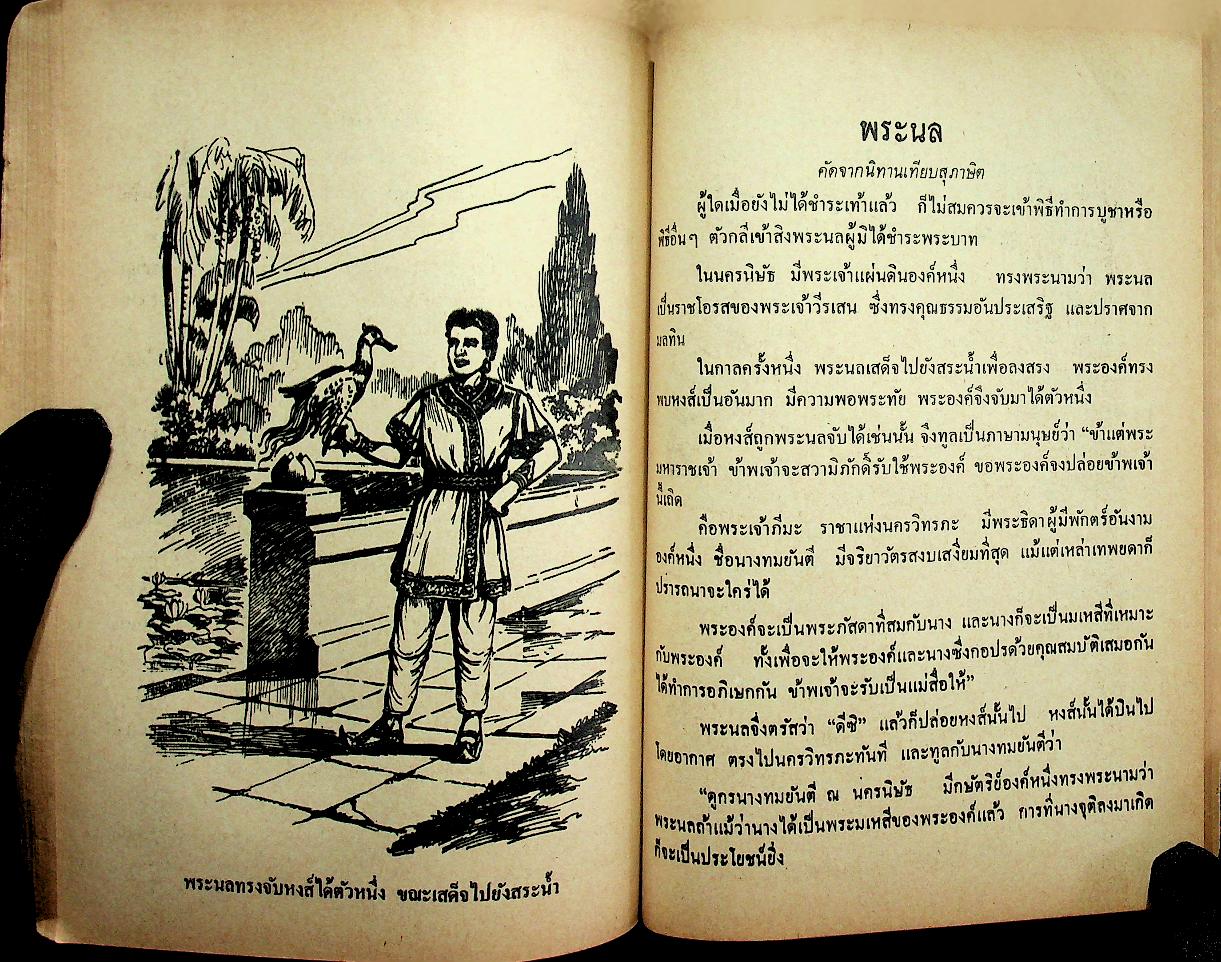 พระนลทรงจับหงส์ได้ตัวหนึ่ง ขณะเสด็จไปยังสระน้ำ
พระนล
คัดจากนิทานเทียบสุภาษิต
ผู้ใดเมื่อยังไม่ได้ชำระเท้าแล้ว ก็ไม่สมควรจะเข้าพิธีทำการบูชาหรือ
พิธีอื่นๆ ตัวกลีเข้าสิงพระนลผู้มิได้ชำระพระบาท
ในนครนิษัธ มีพระเจ้าแผ่นดินองค์หนึ่ง ทรงพระนามว่า พระนล
เป็นราชโอรสของพระเจ้าวีรเสน ซึ่งทรงคุณธรรมอันประเสริฐ และปราศจาก
มลทิน
ในกาลครั้งหนึ่ง พระนลเสด็จไปยังสระน้ำเพื่อลงสรง พระองค์ทรง
พบหงส์เป็นอันมาก มีความพอพระทัย พระองค์จึงจับมาได้ตัวหนึ่ง
เมื่อหงส์ถูกพระนลจับได้เช่นนั้น จึงทูลเป็นภาษามนุษย์ว่า “ข้าแต่พระ
มหาราชเจ้า ข้าพเจ้าจะสวามิภักดิ์รับใช้พระองค์ ขอพระองค์จงปล่อยข้าพเจ้า
นี้เถิด
คือพระเจ้าภีมะ ราชาแห่งนครวิทรภะ มีพระธิดาผู้มีพักตร์อันงาม
องค์หนึ่ง ชื่อนางทมยันตี มีจริยาวัตรสงบเสงี่ยมที่สุด แม้แต่เหล่าเทพยดาก็
ปรารถนาจะใคร่ได้
พระองค์จะเป็นพระภัสดาที่สมกับนาง และนางก็จะเป็นมเหสีที่เหมาะ
กับพระองค์ ทั้งเพื่อจะให้พระองค์และนางซึ่งกอปรด้วยคุณสมบัติเสมอกัน
ได้ทำการอภิเษกกัน ข้าพเจ้าจะรับเป็นแม่สื่อให้”
พระนลจึงตรัสว่า “ดีซิ” แล้วก็ปล่อยหงส์นั้นไป หงส์นั้นได้บินไป
โดยอากาศ ตรงไปนครวิทรภะทันที และทูลกับนางทมยันตีว่า
“ดูกรนางทมยันตี ณ นครนิษัธ มีกษัตริย์องค์หนึ่งทรงพระนามว่า
พระนลถ้าแม้ว่านางได้เป็นพระมเหสีของพระองค์แล้ว การที่นางจุติลงมาเกิด
ก็จะเป็นประโยชน์ยิ่ง